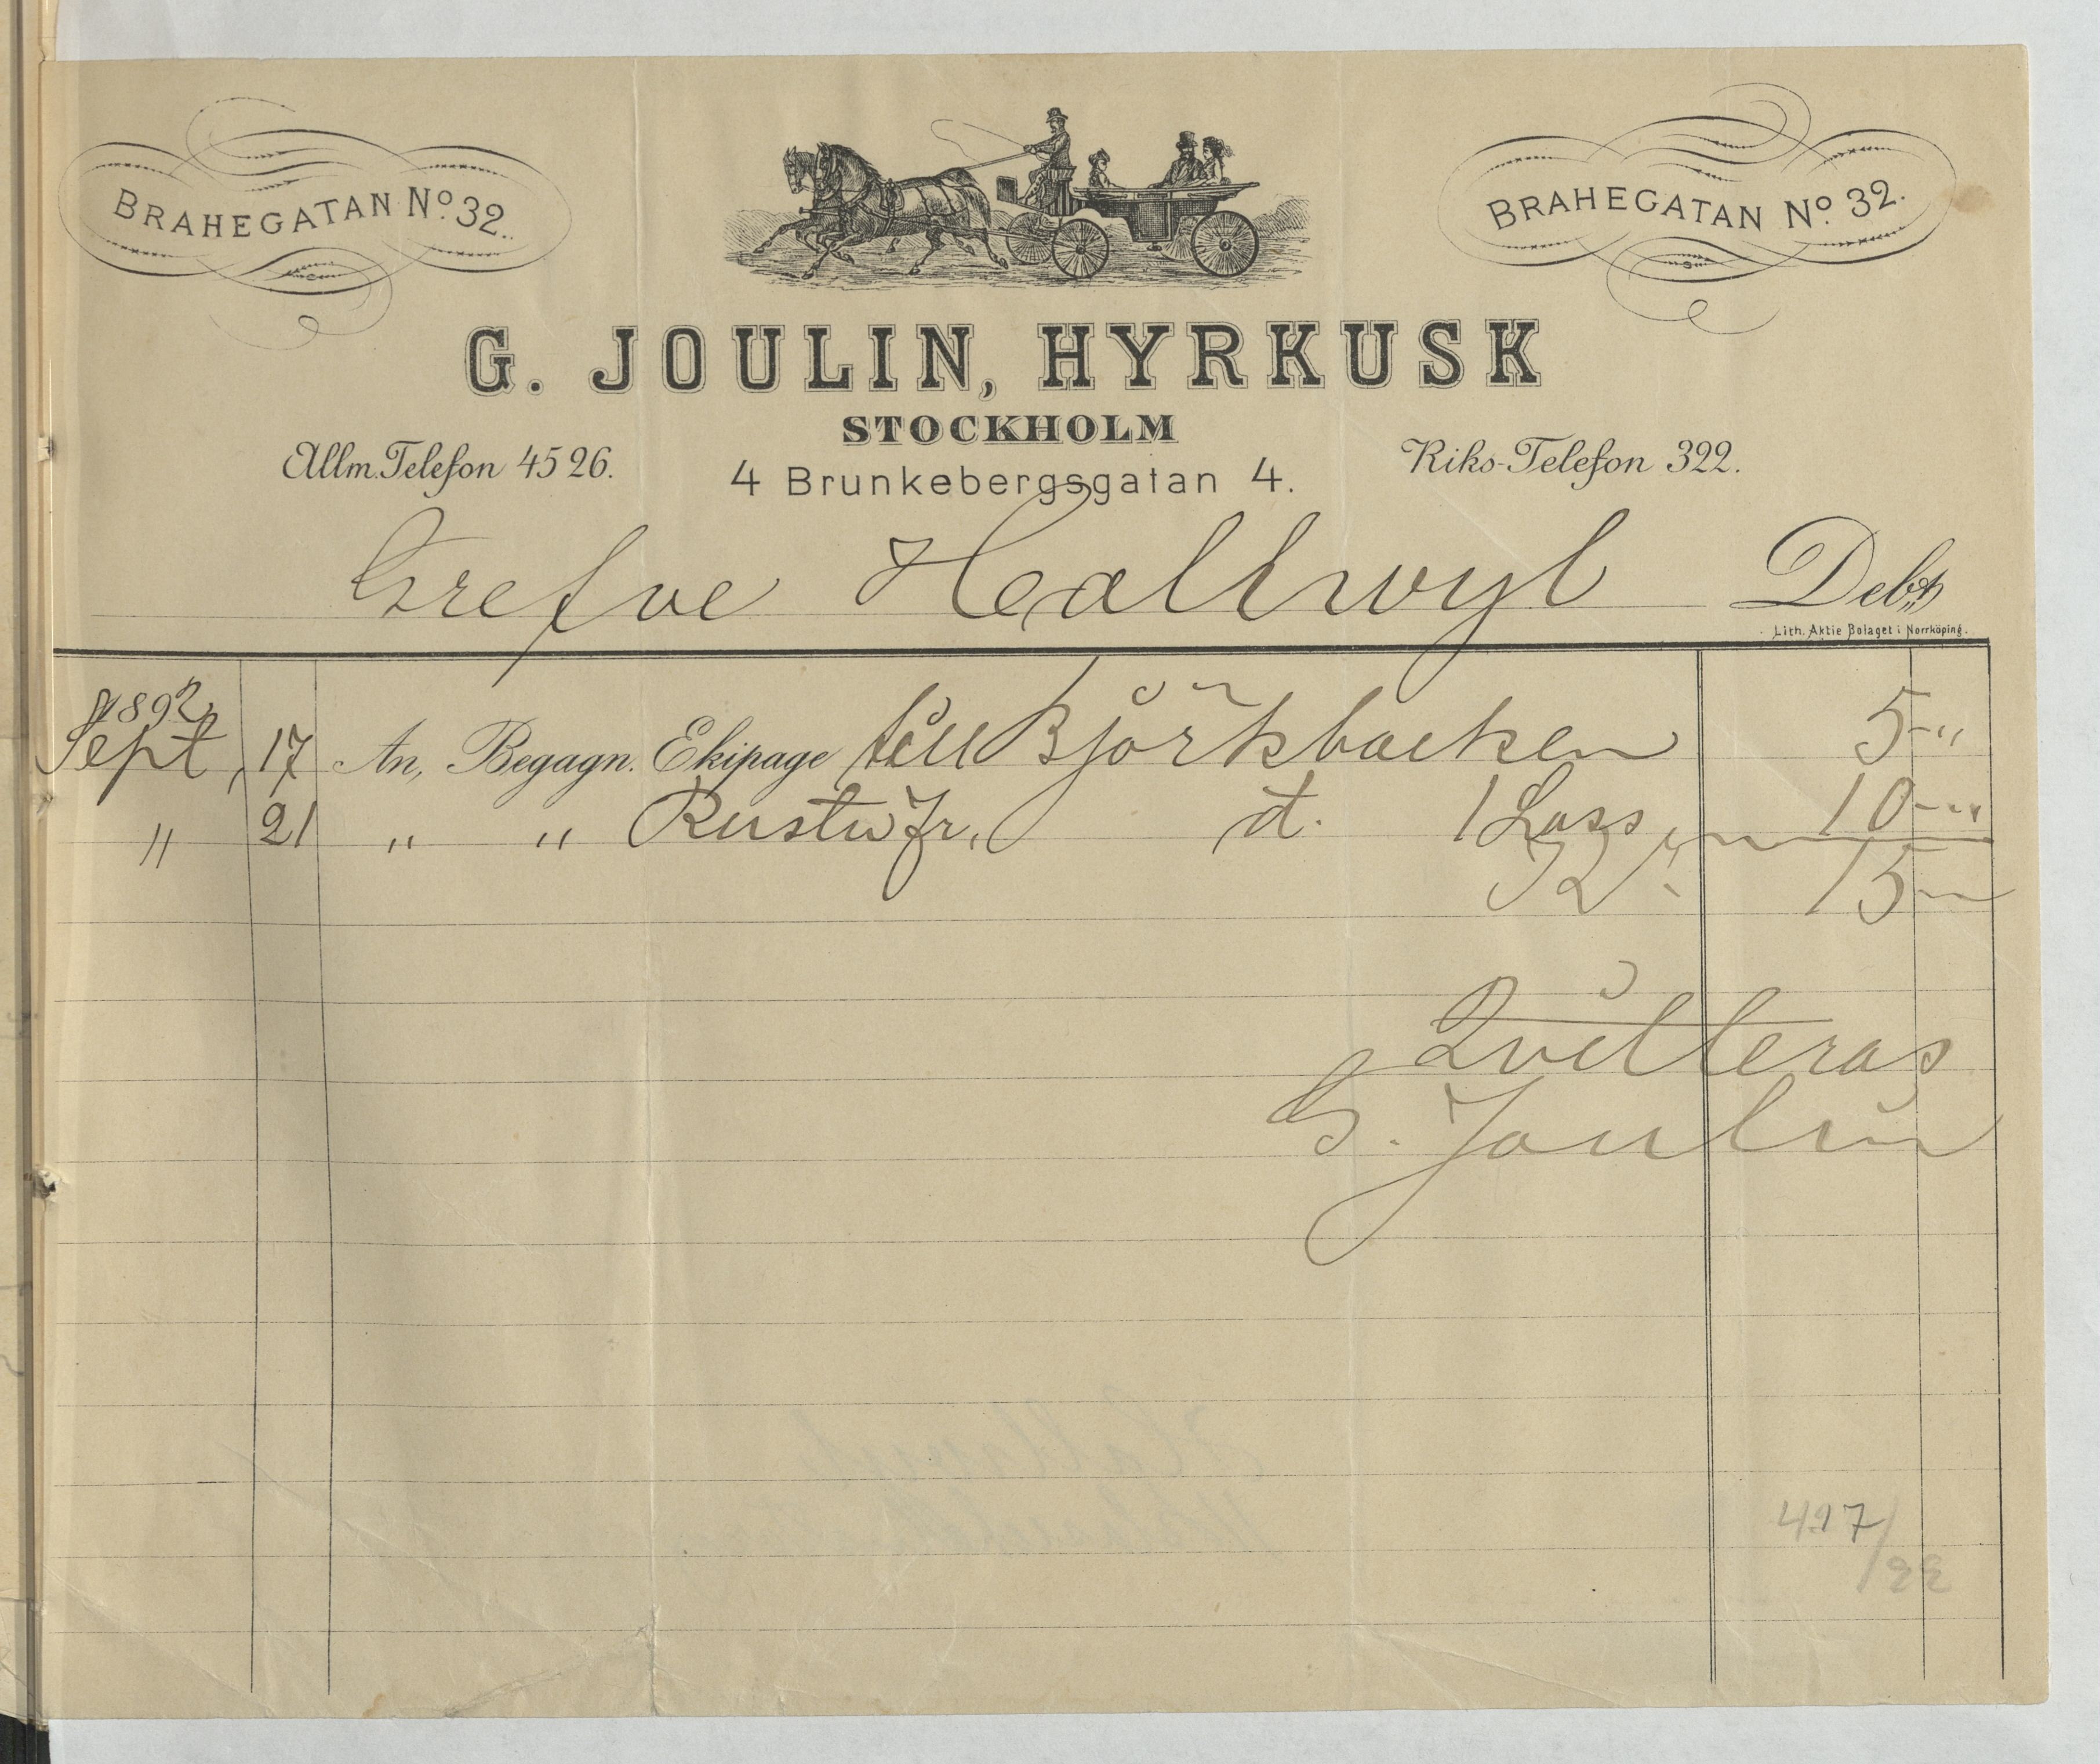 BRAHEGATAN No. 32.
BRAHEGATAN No. 32.
G. JOULIN, HYRKUSK
STOCKHOLM
Allm. Telefon 4526.
4 Brunkebergsgatan 4.
Riks-Telefon 322.
Grefve Hallwyl Debet
Lith. Aktie Bolaget i Norrköping.
1892
Sept, 17 An, Begagn. Ekipage till Björkbacken 5 - "
" 21 " " d. 1 Lass 10 - "
Kr. 15 -
Qvitteras
G. Joulin
417/22